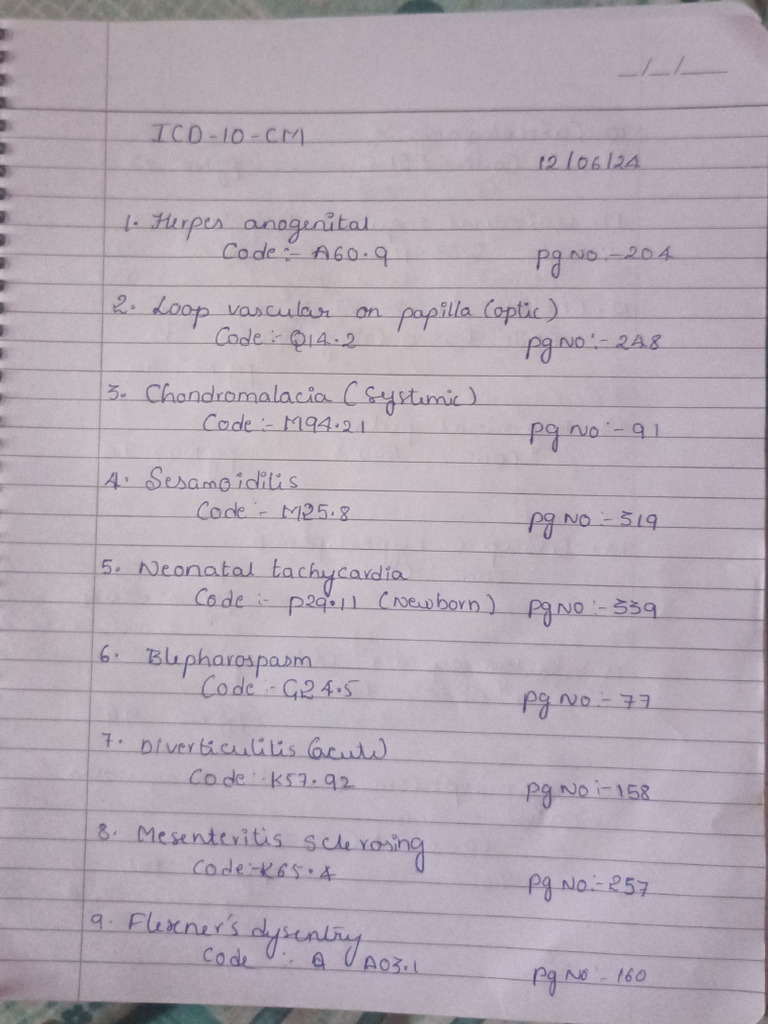 _/_/__
ICD-10-CM
12/06/24
1. Herpes anogenital
Code:- A60.9 pg No:-204
2. Loop vascular on papilla (optic)
Code:- Q14.2 pg No:-248
3. Chondromalacia (Systemic)
Code:- M94.21 pg no:-91
4. Sesamoiditis
Code:- M25.8 pg No:-319
5. Neonatal tachycardia
Code:- P29.11 (Newborn) pg No:-339
6. Blepharospasm
Code:- G24.5 pg No:-77
7. Diverticulitis (acute)
Code:- K57.92 pg No:-158
8. Mesenteritis sclerosing
Code:-K65.4 pg No:-257
9. Flexner's dysentry
Code :- A03.1 pg No - 160